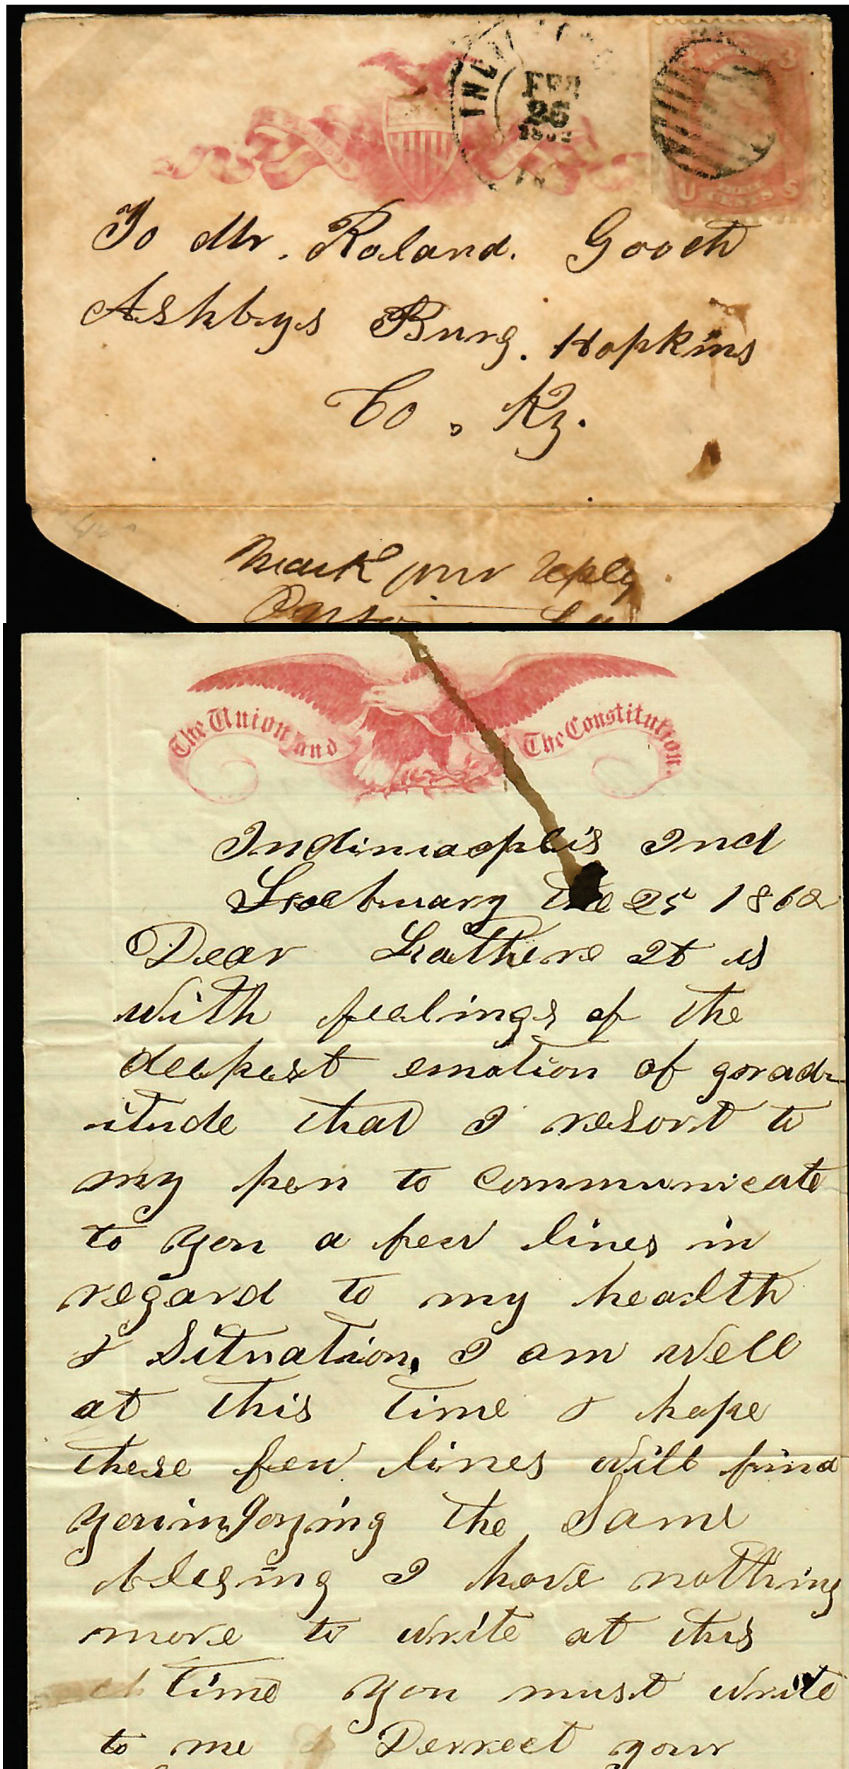 FEB
26
1862
3
U THREE S
CENTS
To Mr. Roland. Gooch
Ashbys Burg. Hopkins
Co, Ky.
Mark your reply
The Union and The Constitution.
Indinaoplis Ind
Froebuary the 25 1862
Dear Frathere It is
with feelings of the
deepest emotion of gorad-
itude that I resort to
my pen to communicate
to you a few lines in
regard to my health
& Situation, I am well
at this time & hope
these few lines will find
youinJoying the Same
blesing I have nothing
more to write at this
time you must write
to me Derrect your